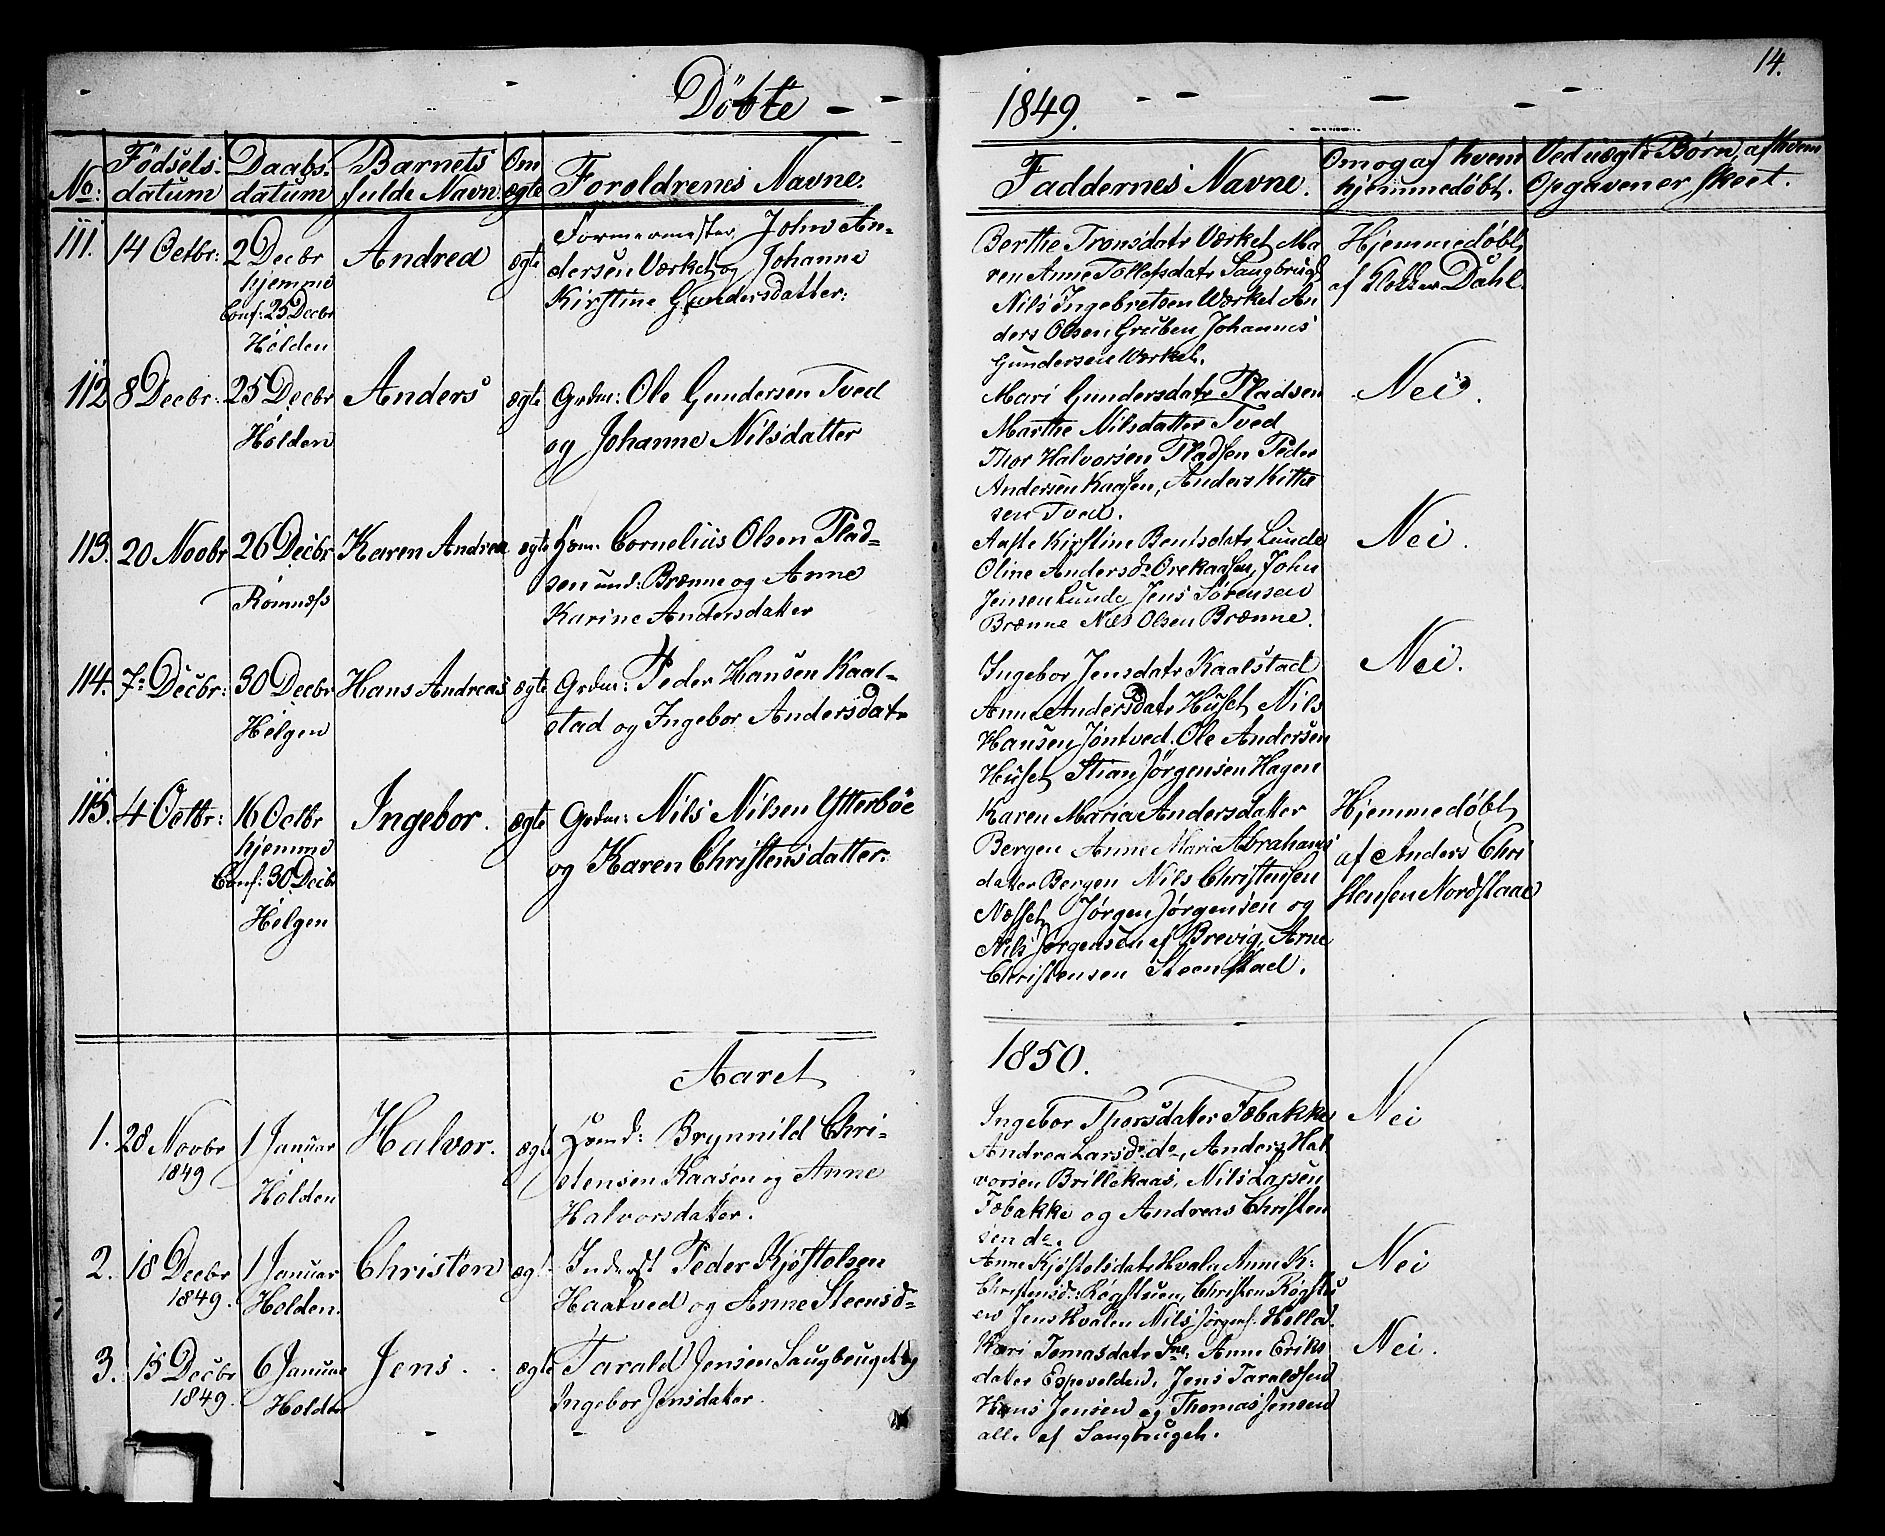 14.
Döbte
1849.
No:
Födsels-
datum
Daabs-
datum
Barnets
fulde Navn
Om
ægte
Foreldrenes Navne.
Faddernes Navne.
Om og af hvem
hjemmedöbt.
Ved uægte Børn, af hvem
Opgaven er skeet.
111.
14 Octbr:
2 Decbr
hjemme
Conf: 25 Decbr
Holden
Andrea
ægte
Formermester, John An-
dersen Værket og Johanne
Kirstine Gundersdatter:
Berthe Tronsdatr Værket Ma-
ren Anne Tollefsdatr Saugbrug
Nils Ingebretsen Værket An
ders Olsen Gruben, Johannes
Gundersen Værket.
Hjemmedöbt
af Dahl
112
8 Decbr:
25 Decbr
Holden
Anders
ægte
Grdm: Ole Gundersen Tved
og Johanne Nilsdatter
Mari Gundersdatr Pladsen
Marthe Nilsdatter Tved
Thor Halvorsen Pladsen Peder
Andersen Kaasen, Anders Kitti
sen Tved.
Nei.
113.
20 Novbr
26 Decbr
Romnæss
Karen Andrea
ægte
Cornelius Olsen Plad-
sen und: Brænne og Anne
Karine Andersdatter
Aaste Kirstine Bentsdatr Lunde
Oline Andersd: Orekaasen, John
Jensen Lunde, Jens Sörensen
Brænne Nils Olsen Brænne.
Nei.
114.
7: Decbr:
30 Decbr
Helgen
Hans Andreas
ægte
Grdm: Peder Hansen Kaal-
stad og Ingebor Andersdatr
Ingebor Jensdatr Kaalstad
Anne Andersdatr Huset Nils
Hansen Jöntved. Ole Andersen
Huset, Stian Jörgensen Hagen
Nei.
115.
4 Octbr:
16 Octbr
hjemme
Conf: 30 Decbr
Helgen
Ingebor.
ægte
Grdm: Nils Nilsen Ytterböe
og Karen Christensdatter.
Karen Maria Andersdatter
Bergen Anne Maria Abrahams
datter Bergen Nils Christensen
Næsset, Jørgen Jørgensen og
Nils Jørgensen af Brevig, Arne
Christensen Steenstad.
Hjemmedöbt
af Anders Chri
stensen Nordstaae
Aaret
1850.
1.
28 Novbr
1849
1 Januar
Holden
Halvor.
ægte
Brynnild Chri-
stensen Kaasen og Anne
Halvorsdatter.
Ingebor Thorsdatter Tæbakke
Andrea Larsd: do, Anders Hal
vorsen Brillekaas, Nils Larsen
Tæbakke og Andreas Christen
sen do.
Nei
2.
18 Decbr
1849.
1 Januar
Holden.
Christen
ægte
Inderst Peder Kjöstolsen
Haatved og Anne Steensd-
Anne Kjöstolsdatr Hvala Anne K:
Christensd: Røgstuen, Christen Røgstu
en Jens Hvalen Nils Jørgens. Holla.
Nei
3.
15 Decbr
1849.
6 Januar
Holden
Jens.
ægte
Tarald Jensen Saugbruget og
Ingebor Jensdatter.
Kari Tomasdatr Anne Eriks
datter Espevolden, Jens Taraldsen
Hans Jensen og Thomas Jensen
alle af Saugbruget.
Nei.